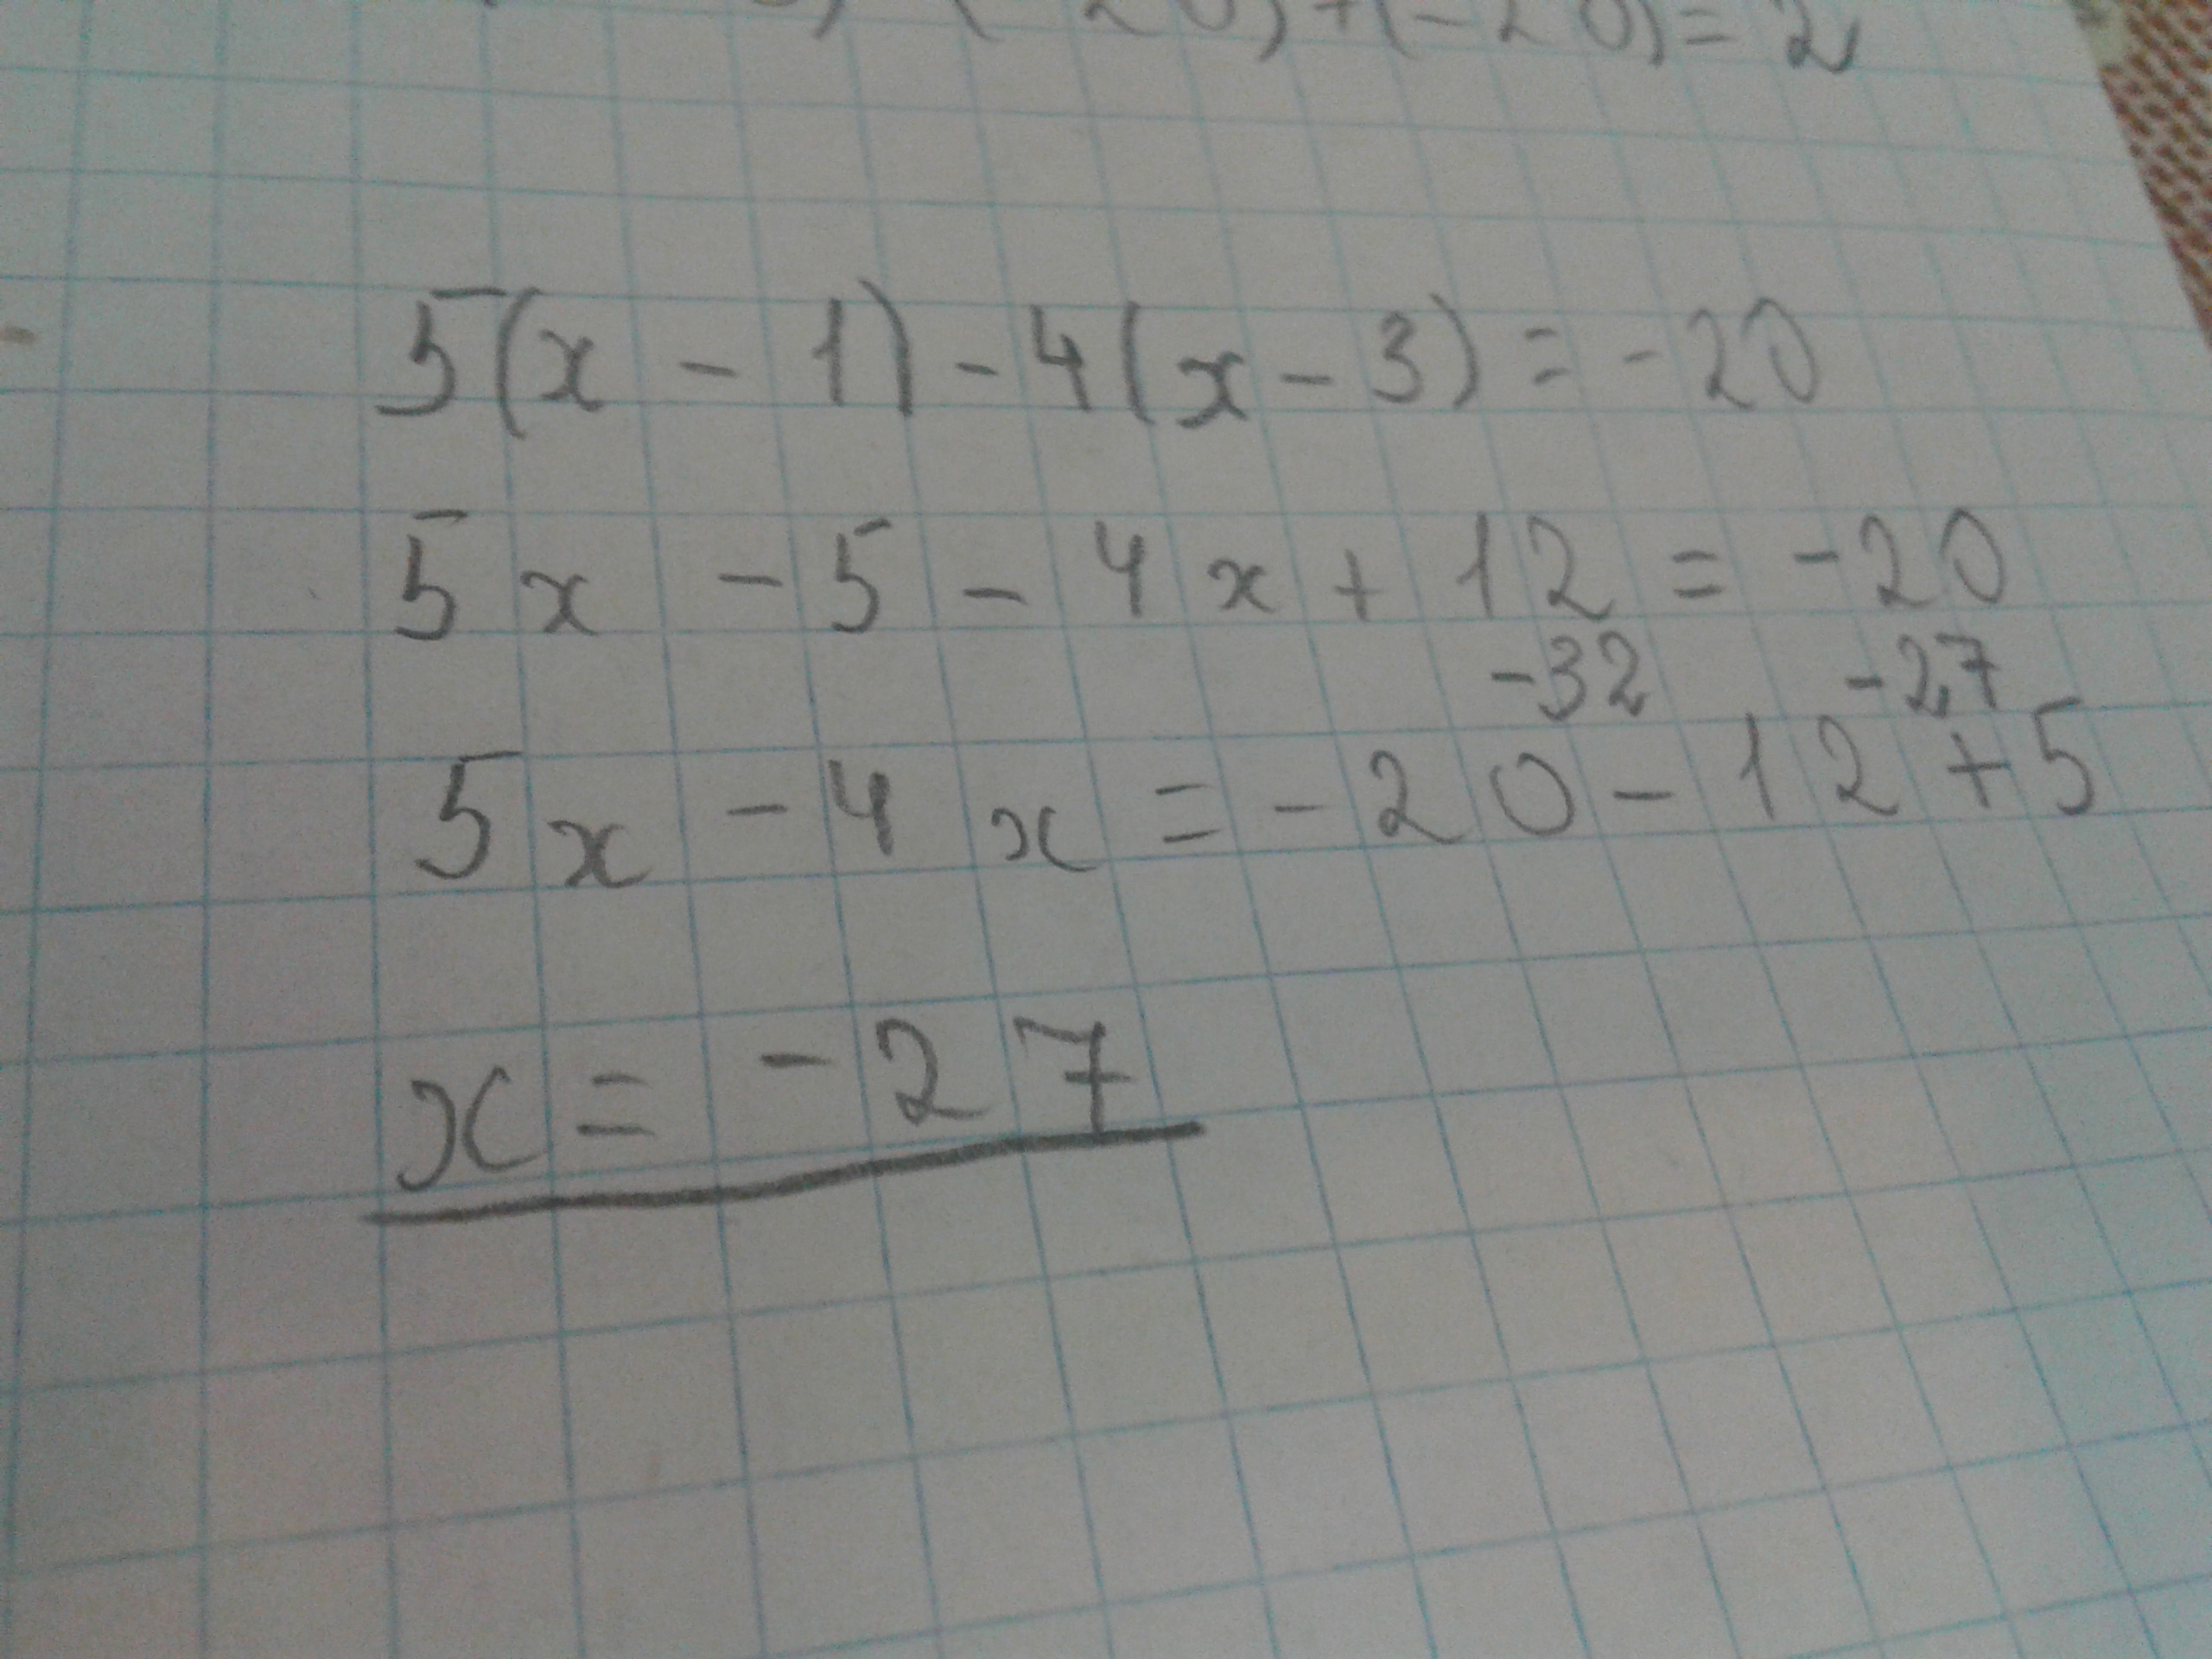 20)+(-20)=2
5(x-1)-4(x-3)=-20
5x-5-4x+12=-20
-32 -27
5x-4x=-20-12+5
x=-27